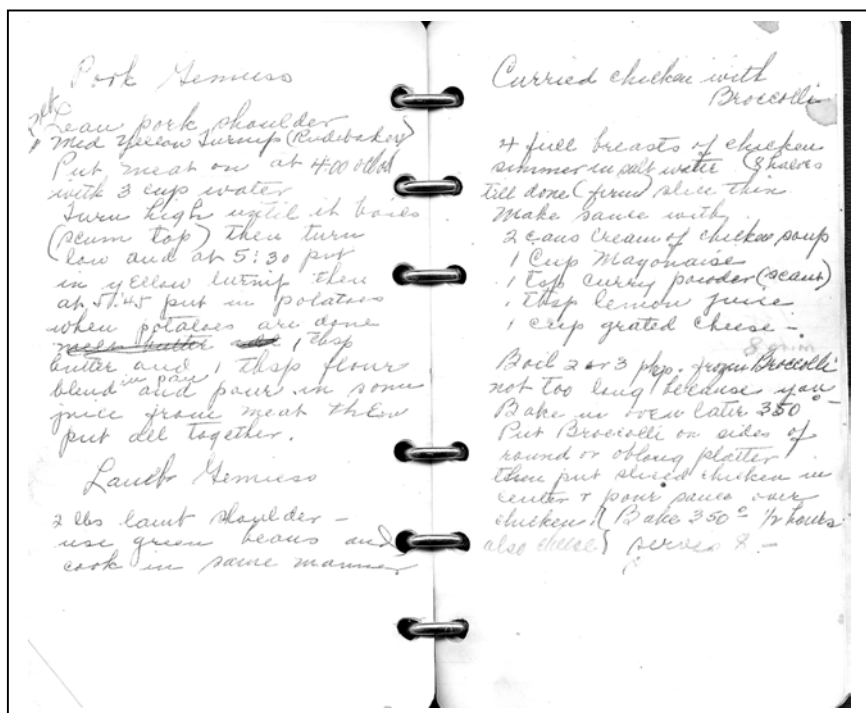 Pork Gemuso
2 lbs
Lean pork shoulder
1 Med Yellow Turnip (Rudebaker)
Put meat on at 4:00 oclock
with 3 cup water
Turn high until it boils
(scum top) then turn
low and at 5:30 put
in yellow turnip then
at 5:45 put in potatoes
when potatoes are done
melt butter 1 Tbsp
butter and 1 tbsp flour
blend in pan and pour in some
juice from meat then
put all together.
Lamb Gemuso
2 lbs lamb shoulder –
use green beans and
cook in same manner
Curried chicken with
Broccolli
4 full breasts of chicken
simmer in salt water (8 halves
till done (firm) slice thin
Make sauce with
2 cans cream of chicken soup
1 Cup Mayonaise
1 tsp curry powder (scant)
1 tbsp lemon juice
1 cup grated cheese –
Boil 2 or 3 pkg. frozen Broccolli
not too long because you
Bake in oven later 350° –
Put Broccolli on sides of
round or oblong platter
then put sliced chicken in
center & pour sauce over
chicken. (Bake 350° 1/2 hours
also cheese) serves 8 –